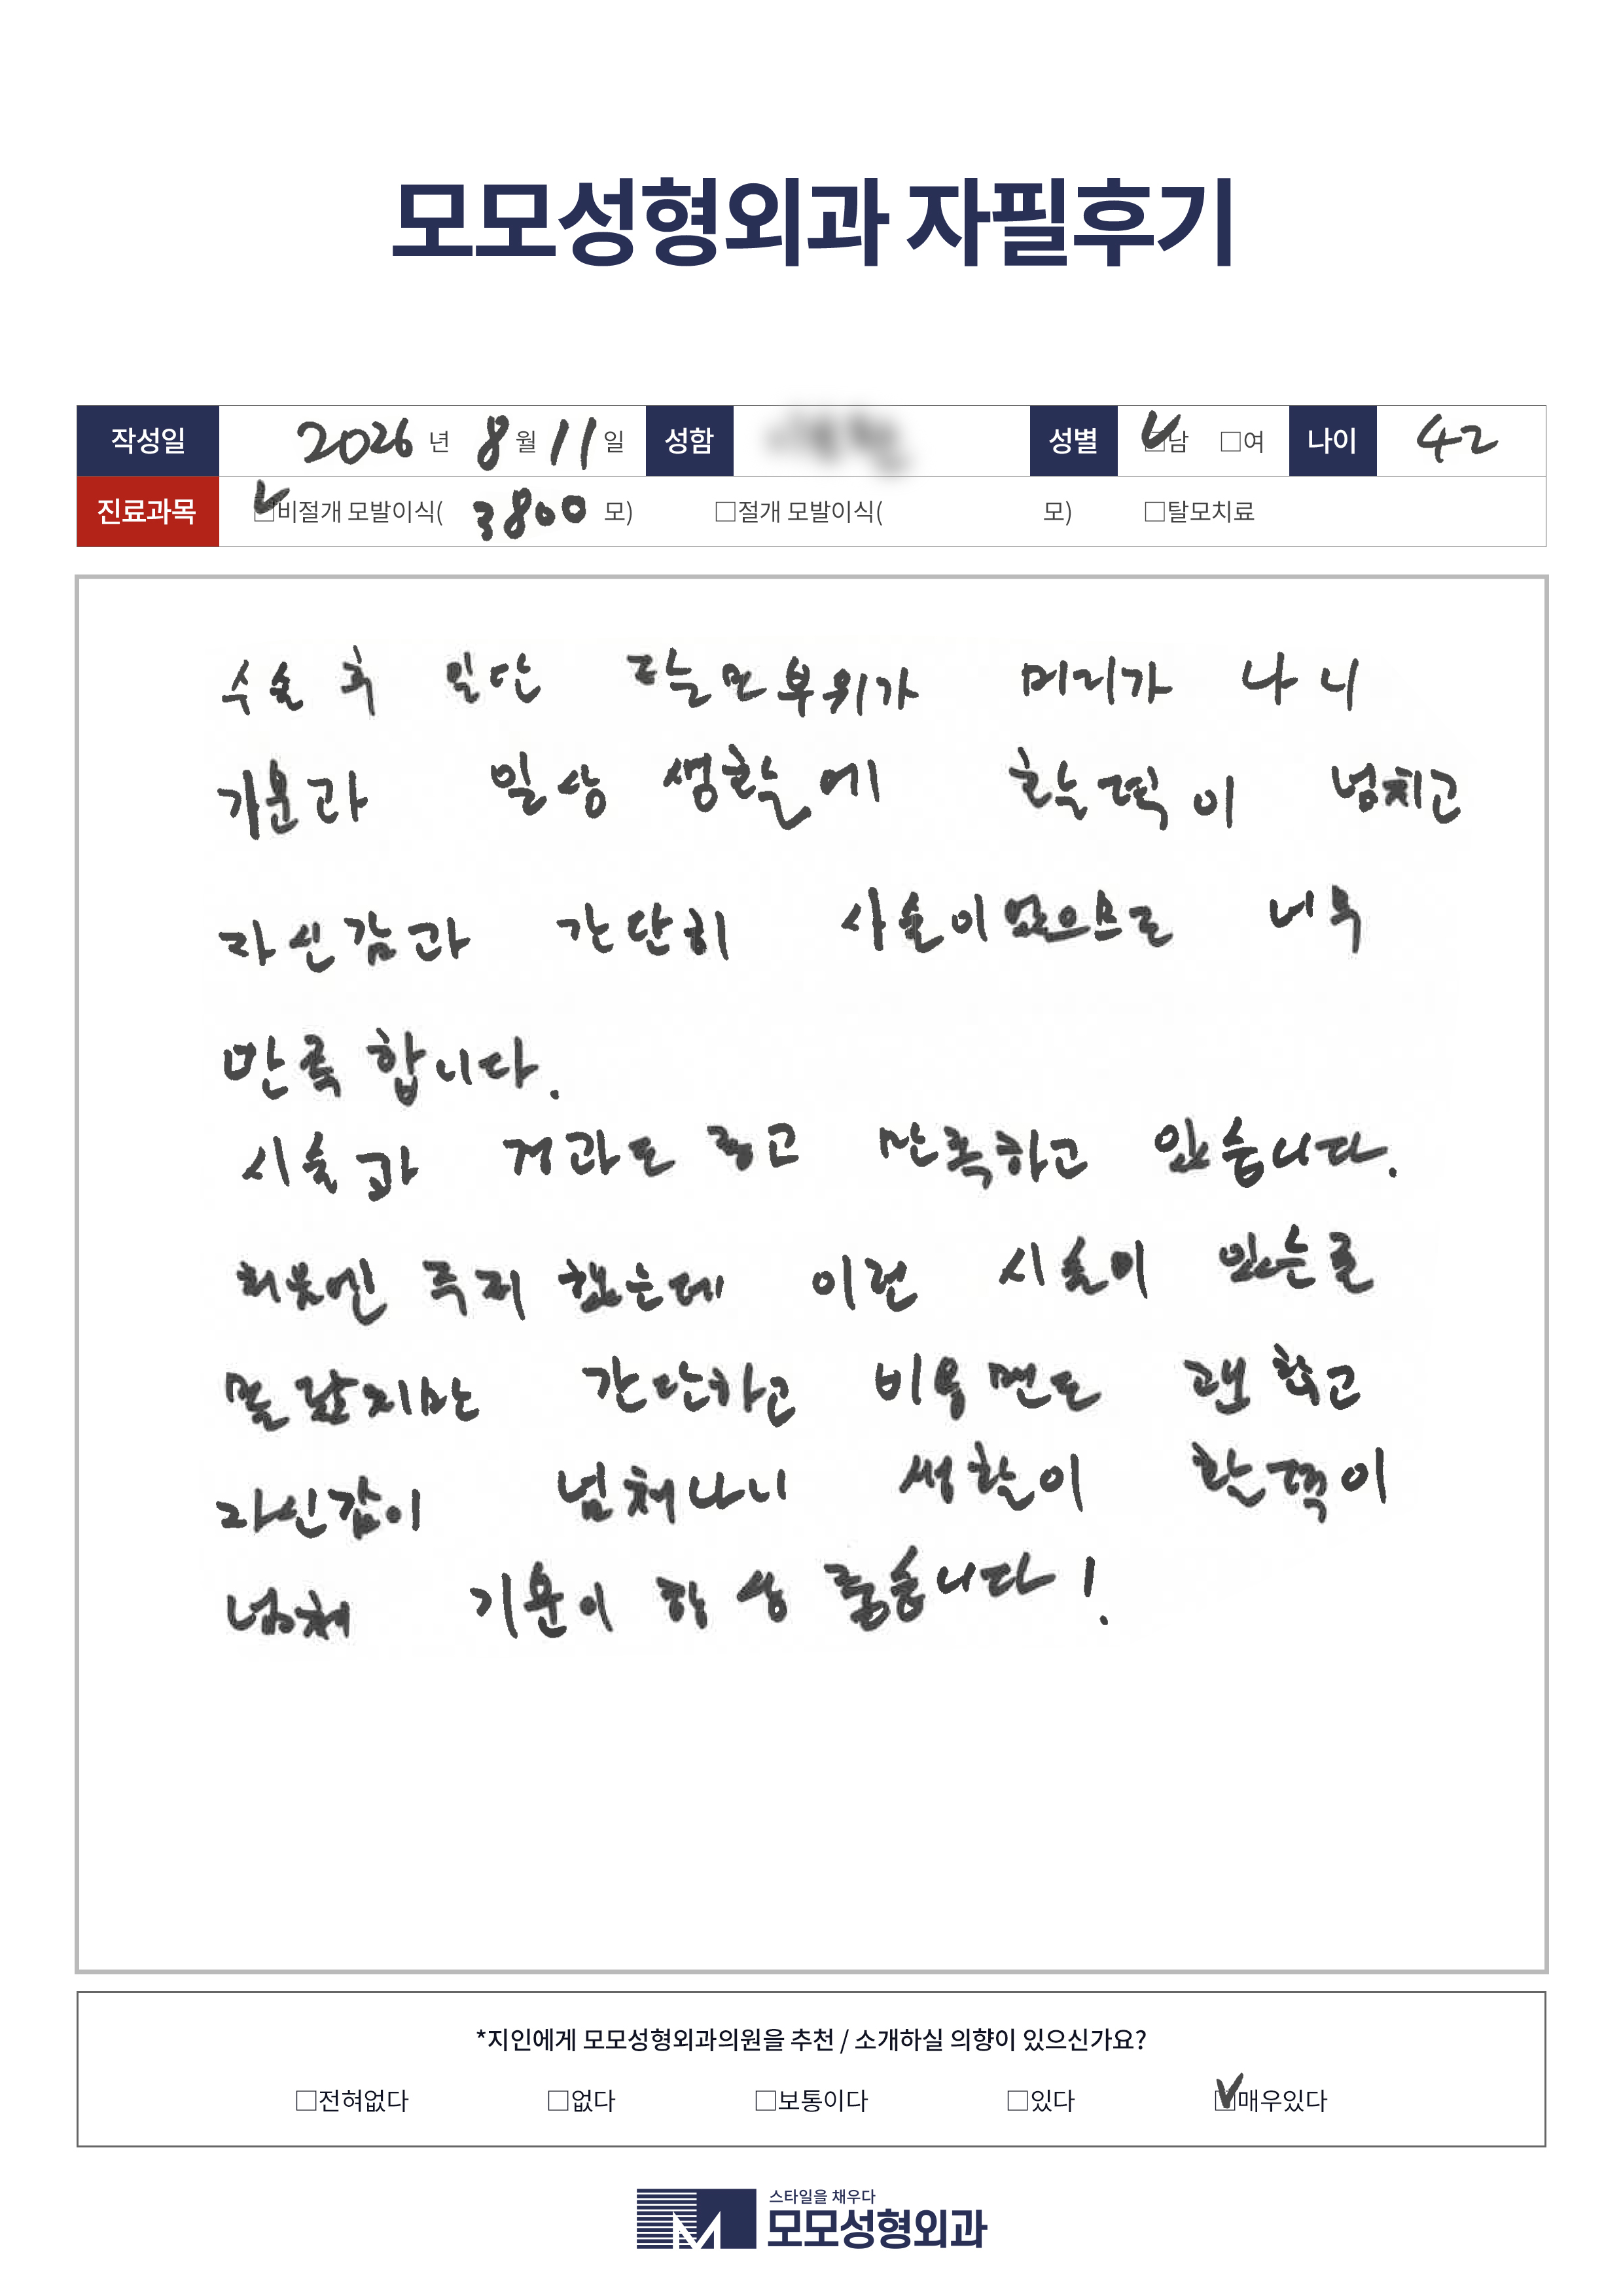 모모성형외과 자필후기
작성일 2026 년 8 월 11 일 성함 성별 ☑남 □여 나이 42
진료과목 ☑비절개 모발이식( 3800 모) □절개 모발이식( 모) □탈모치료
수술 후 일단 탈모부위가 머리가 나니
기운과 일상 생활에 활력이 넘치고
자신감과 간단히 시술이 없으므로 너무
만족 합니다.
시술과 결과도 좋고 만족하고 있습니다.
처음엔 주저 했는데 이런 시술이 있는줄
몰랐지만 간단하고 비용면도 괜찮고
자신감이 넘쳐나니 생활이 활력이
넘쳐 기운이 항상 좋습니다!
*지인에게 모모성형외과의원을 추천 / 소개하실 의향이 있으신가요?
□전혀없다 □없다 □보통이다 □있다 ☑매우있다
스타일을 채우다
모모성형외과